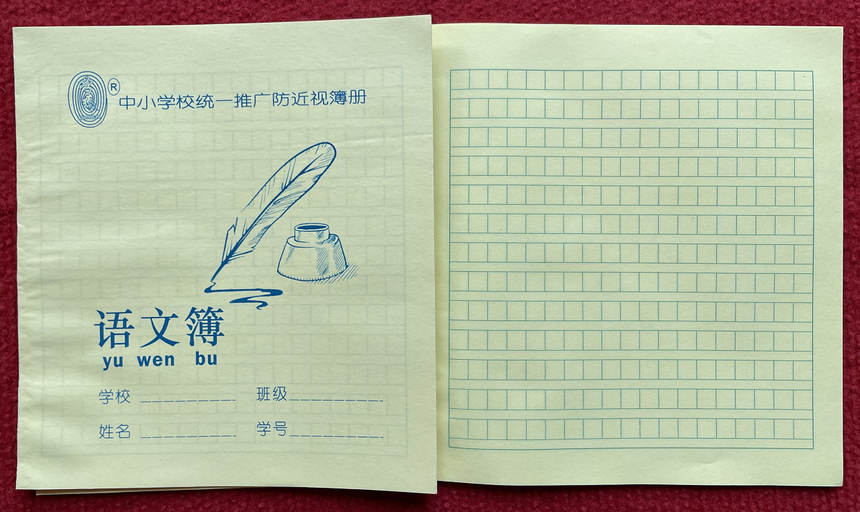 ® 中小学校统一推广防近视簿册
语文簿
yu wen bu
学校 班级
姓名 学号